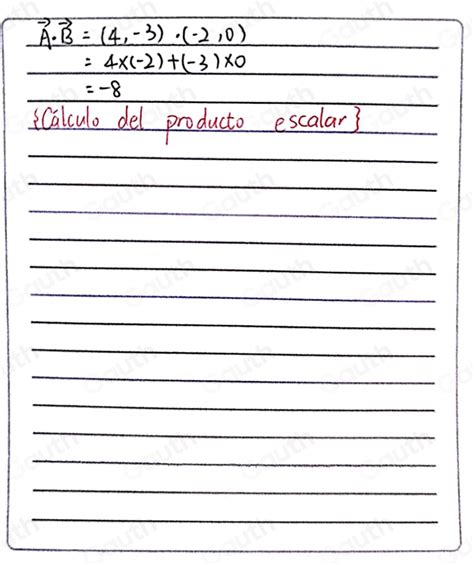 A⃗·B⃗ = (4,-3)·(-2,0)
= 4×(-2)+(-3)×0
= -8
{Cálculo del producto escalar}